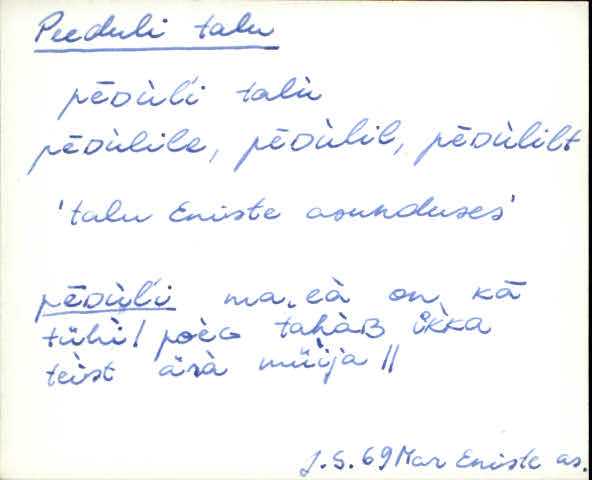 Peeduli talu
pēᴅùĺi talù
pēᴅùlile, pēᴅùlil, pēᴅùlilt
'talu Eniste asunduses'
pēᴅùĺi ma͔eà on͔ kā
tühì/ poèɢ tahàʙ ìkka
teìst ärà müìja //
J.S. 69 Mar Eniste as.